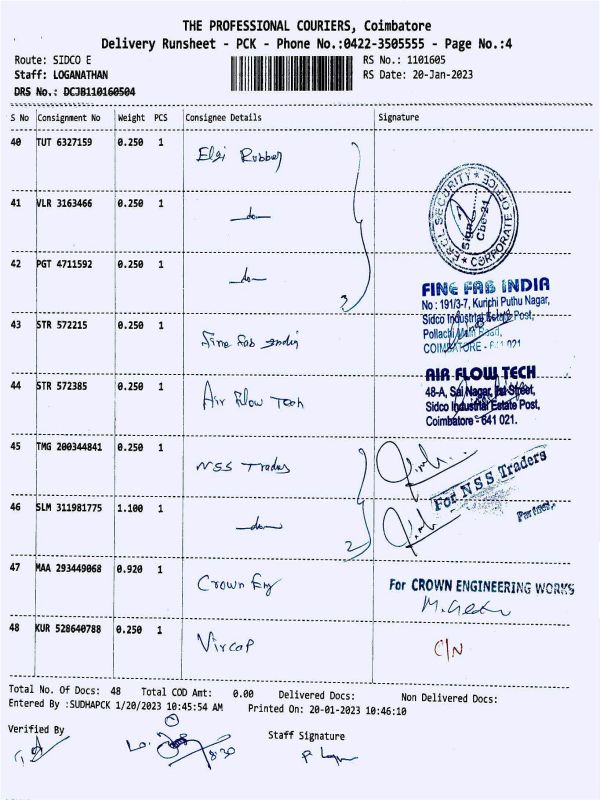 THE PROFESSIONAL COURIERS, Coimbatore
Delivery Runsheet - PCK - Phone No.:0422-3505555 - Page No.:4
Route: SIDCO E
RS No.: 1101605
Staff: LOGANATHAN
RS Date: 20-Jan-2023
DRS No.: DCJB110160504
S No Consignment No Weight PCS Consignee Details Signature
40 TUT 6327159 0.250 1 Elgi Rubber
41 VLR 3163466 0.250 1 -do-
SECURITY
CORPORATE OFFICE
Sign
Cbe-21
42 PGT 4711592 0.250 1 -do-
3
FINE FAB INDIA
No : 191/3-7, Kurichi Puthu Nagar,
Sidco Industrial Estate Post,
Pollachi Main Road,
COIMBATORE - 641 021
43 STR 572215 0.250 1 Fine Fab India
AIR FLOW TECH
48-A, Sai Nagar, Ist Street,
Sidco Industrial Estate Post,
Coimbatore - 641 021.
44 STR 572385 0.250 1 Air Flow Tech
45 TMG 200344841 0.250 1 NSS Traders
For NSS Traders
Partner.
46 SLM 311981775 1.100 1 -do-
2
47 MAA 293449068 0.920 1 Crown Eng
For CROWN ENGINEERING WORKS
48 KUR 528640788 0.250 1 Vircap
C/N
Total No. Of Docs: 48 Total COD Amt: 0.00 Delivered Docs: Non Delivered Docs:
Entered By :SUDHAPCK 1/20/2023 10:45:54 AM Printed On: 20-01-2023 10:46:10
Verified By
Staff Signature
8:30